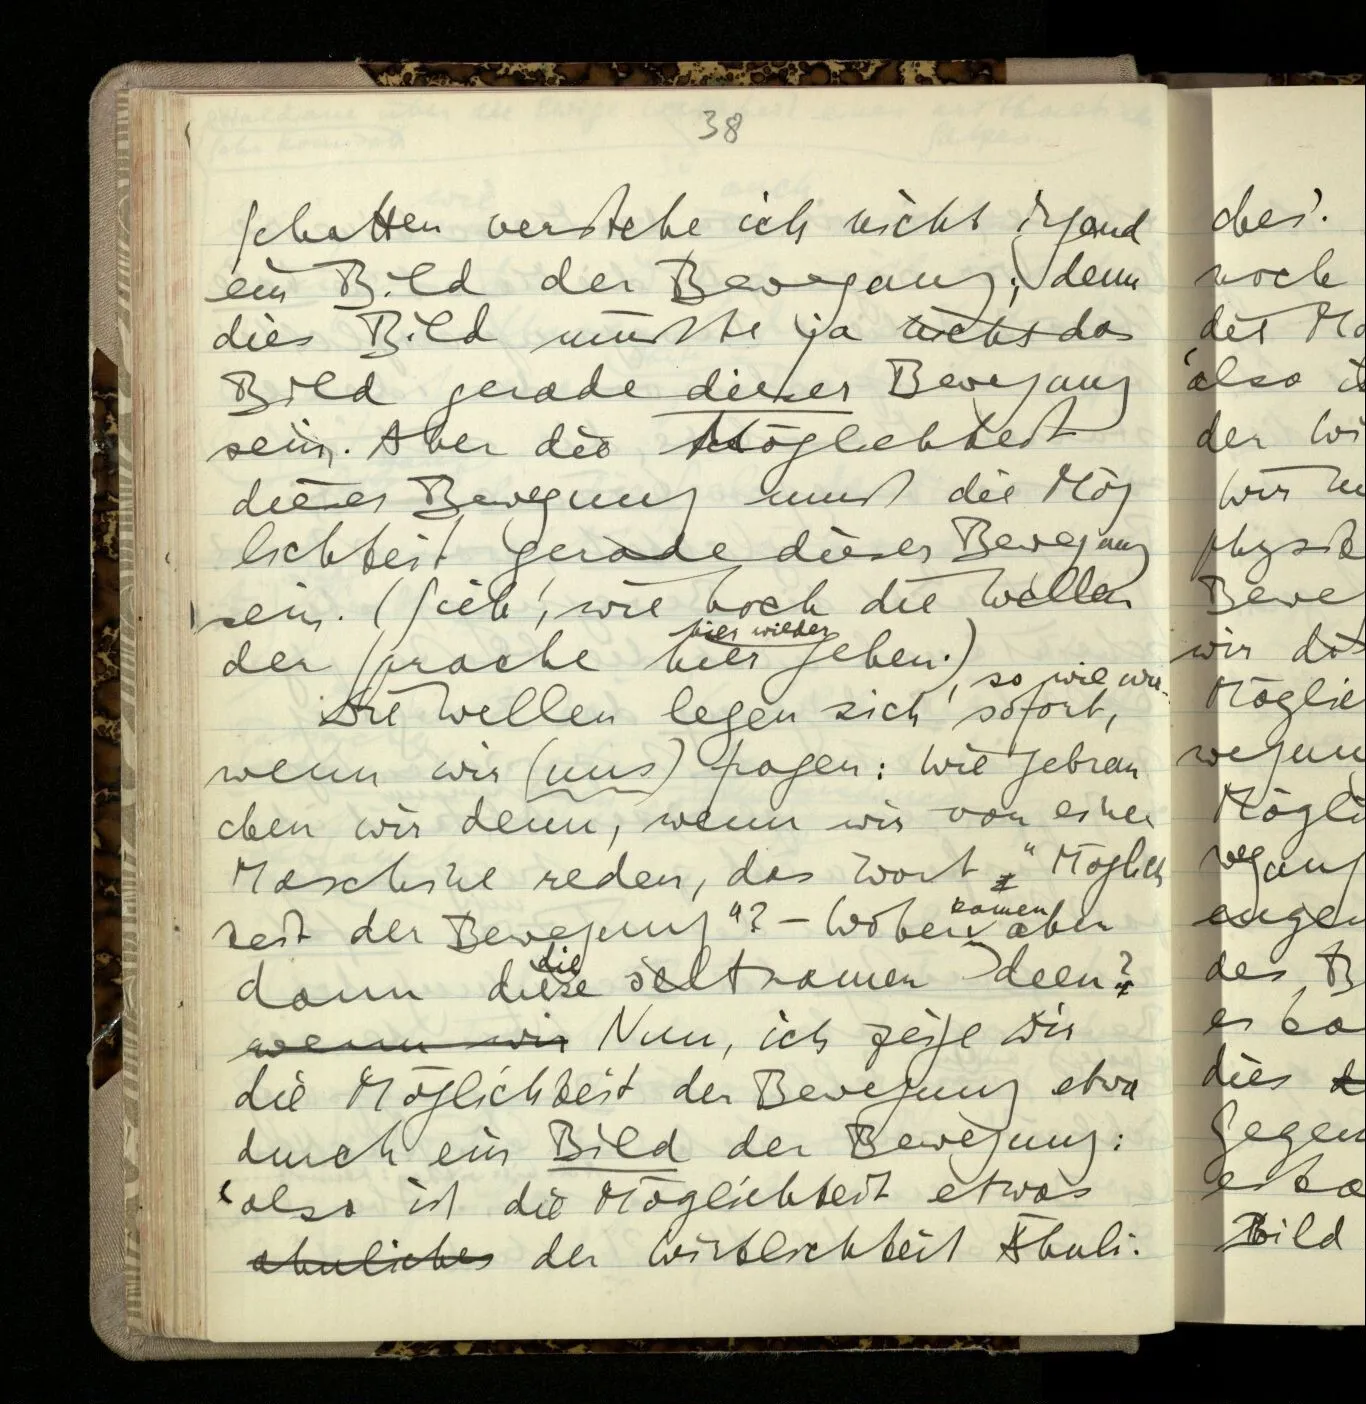 38
Schatten verstehe ich nicht irgend
ein Bild der Bewegung; denn
dies Bild müsste ja nicht das
Bild gerade dieser Bewegung
sein. Aber die Möglichkeit
dieser Bewegung muss die Mög
lichkeit gerade dieser Bewegung
sein. (Sieh', wie hoch die Wellen
hier wieder
der Sprache hier gehen.)
, so wie wir
Die Wellen legen sich sofort,
wenn wir (uns) fragen: wie gebrau
chen wir denn, wenn wir von einer
Maschine reden, das Wort „Möglich
keit der Bewegung“? – Woher
kamen
aber
die
dann diese seltsamen Ideen?
wenn wir Nun, ich zeige Dir
die Möglichkeit der Bewegung etwa
durch ein Bild der Bewegung:
‘also ist die Möglichkeit etwas
ähnliches der Wirklichkeit Ähnli-
ches’.
noch
der Mö
‘also
der Wi
wir
physik
Bewe
wir
Möglic
wegun
Mögli
wegung
des B
es
dies
Gegen
es
Bild